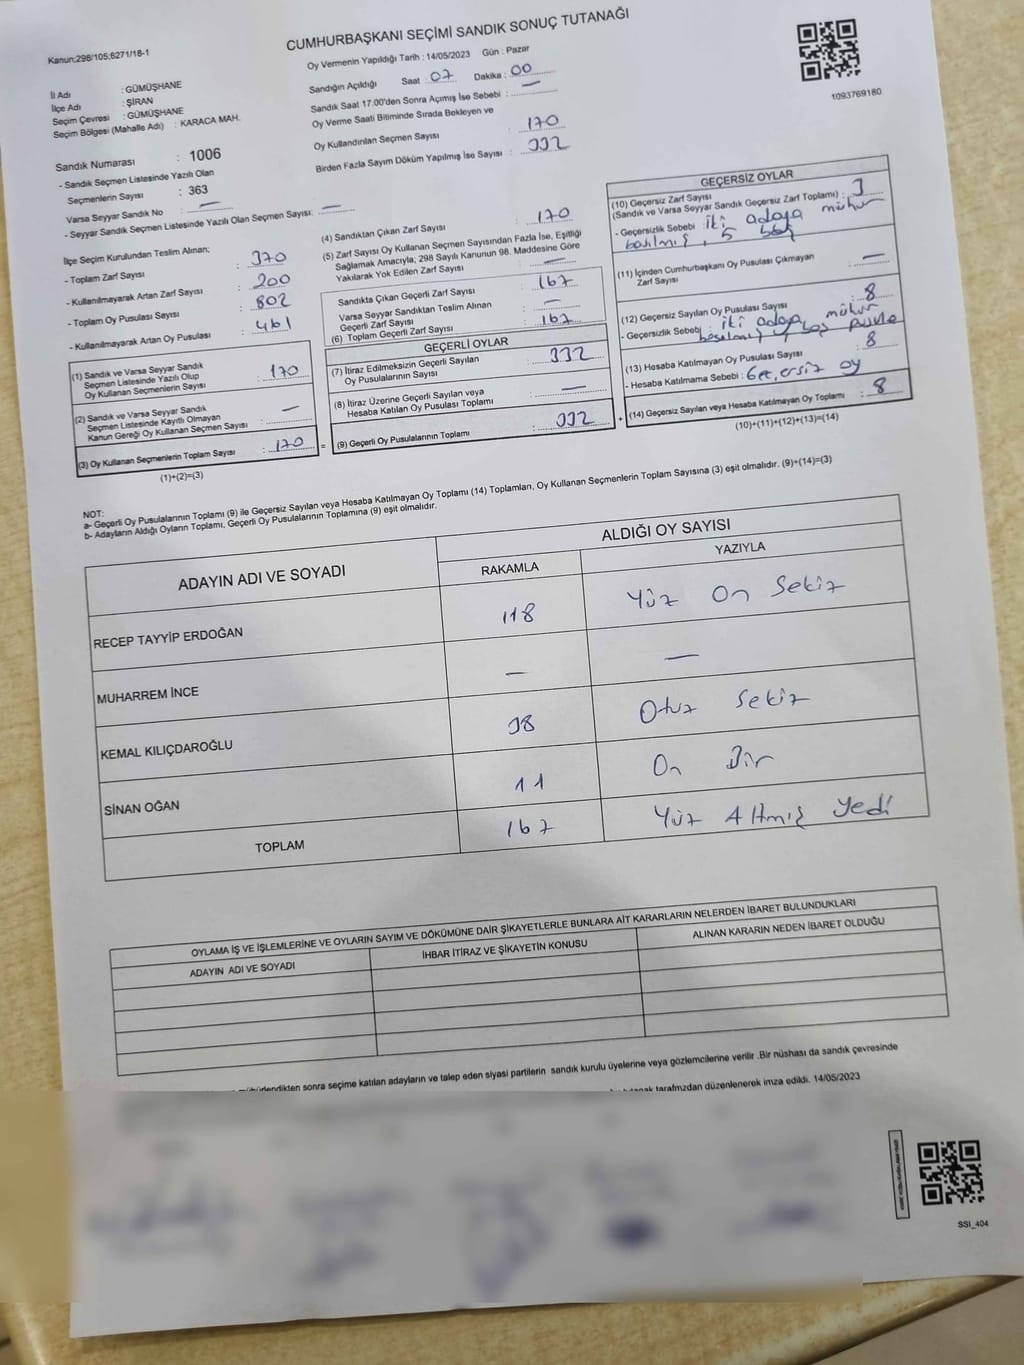 Kanun;298/105;6271/18-1
CUMHURBAŞKANI SEÇİMİ SANDIK SONUÇ TUTANAĞI
Oy Vermenin Yapıldığı Tarih : 14/05/2023 Gün : Pazar
1093769180
İl Adı : GÜMÜŞHANE
İlçe Adı : ŞİRAN
Seçim Çevresi : GÜMÜŞHANE
Seçim Bölgesi (Mahalle Adı) : KARACA MAH.
Sandığın Açıldığı Saat : 07 Dakika : 00
Sandık Saat 17:00'den Sonra Açılmış İse Sebebi : —
Oy Verme Saati Bitiminde Sırada Bekleyen ve
Oy Kullandırılan Seçmen Sayısı : 170
Birden Fazla Sayım Döküm Yapılmış İse Sayısı : 332
Sandık Numarası : 1006
- Sandık Seçmen Listesinde Yazılı Olan
Seçmenlerin Sayısı : 363
Varsa Seyyar Sandık No : —
- Seyyar Sandık Seçmen Listesinde Yazılı Olan Seçmen Sayısı: —
İlçe Seçim Kurulundan Teslim Alınan;
- Toplam Zarf Sayısı : 370
- Kullanılmayarak Artan Zarf Sayısı : 200
- Toplam Oy Pusulası Sayısı : 802
- Kullanılmayarak Artan Oy Pusulası : 461
(1) Sandık ve Varsa Seyyar Sandık
Seçmen Listesinde Yazılı Olup
Oy Kullanan Seçmenlerin Sayısı : 170
(2) Sandık ve Varsa Seyyar Sandık
Seçmen Listesinde Kayıtlı Olmayan
Kanun Gereği Oy Kullanan Seçmen Sayısı : —
(3) Oy Kullanan Seçmenlerin Toplam Sayısı : 170
(1)+(2)=(3)
(4) Sandıktan Çıkan Zarf Sayısı : 170
(5) Zarf Sayısı Oy Kullanan Seçmen Sayısından Fazla İse, Eşitliği
Sağlamak Amacıyla; 298 Sayılı Kanunun 98. Maddesine Göre
Yakılarak Yok Edilen Zarf Sayısı : —
Sandıkta Çıkan Geçerli Zarf Sayısı : 167
Varsa Seyyar Sandıktan Teslim Alınan
Geçerli Zarf Sayısı : —
(6) Toplam Geçerli Zarf Sayısı : 167
GEÇERLİ OYLAR
(7) İtiraz Edilmeksizin Geçerli Sayılan
Oy Pusulalarının Sayısı : 332
(8) İtiraz Üzerine Geçerli Sayılan veya
Hesaba Katılan Oy Pusulası Toplamı : —
= (9) Geçerli Oy Pusulalarının Toplamı : 332 +
GEÇERSİZ OYLAR
(10) Geçersiz Zarf Sayısı
(Sandık ve Varsa Seyyar Sandık Geçersiz Zarf Toplamı) : 3
- Geçersizlik Sebebi : iki adaya mühür
basılmış, 5 boş
(11) İçinden Cumhurbaşkanı Oy Pusulası Çıkmayan
Zarf Sayısı : —
(12) Geçersiz Sayılan Oy Pusulası Sayısı : 8
- Geçersizlik Sebebi : iki adaya mühür
boş pusula
(13) Hesaba Katılmayan Oy Pusulası Sayısı : 8
- Hesaba Katılmama Sebebi : Geçersiz oy
(14) Geçersiz Sayılan veya Hesaba Katılmayan Oy Toplamı : 8
(10)+(11)+(12)+(13)=(14)
NOT:
a- Geçerli Oy Pusulalarının Toplamı (9) ile Geçersiz Sayılan veya Hesaba Katılmayan Oy Toplamı (14) Toplamları, Oy Kullanan Seçmenlerin Toplam Sayısına (3) eşit olmalıdır. (9)+(14)=(3)
b- Adayların Aldığı Oyların Toplamı, Geçerli Oy Pusulalarının Toplamına (9) eşit olmalıdır.
ADAYIN ADI VE SOYADI
ALDIĞI OY SAYISI
RAKAMLA YAZIYLA
RECEP TAYYİP ERDOĞAN 118 Yüz On Sekiz
MUHARREM İNCE — —
KEMAL KILIÇDAROĞLU 38 Otuz Sekiz
SİNAN OĞAN 11 On Bir
TOPLAM 167 Yüz Altmış Yedi
OYLAMA İŞ VE İŞLEMLERİNE VE OYLARIN SAYIM VE DÖKÜMÜNE DAİR ŞİKAYETLERLE BUNLARA AİT KARARLARIN NELERDEN İBARET BULUNDUKLARI
ADAYIN ADI VE SOYADI İHBAR İTİRAZ VE ŞİKAYETİN KONUSU ALINAN KARARIN NEDEN İBARET OLDUĞU
mühürlendikten sonra seçime katılan adayların ve talep eden siyasi partilerin sandık kurulu üyelerine veya gözlemcilerine verilir .Bir nüshası da sandık çevresinde
tutanak tarafımızdan düzenlenerek imza edildi. 14/05/2023
SSI_404